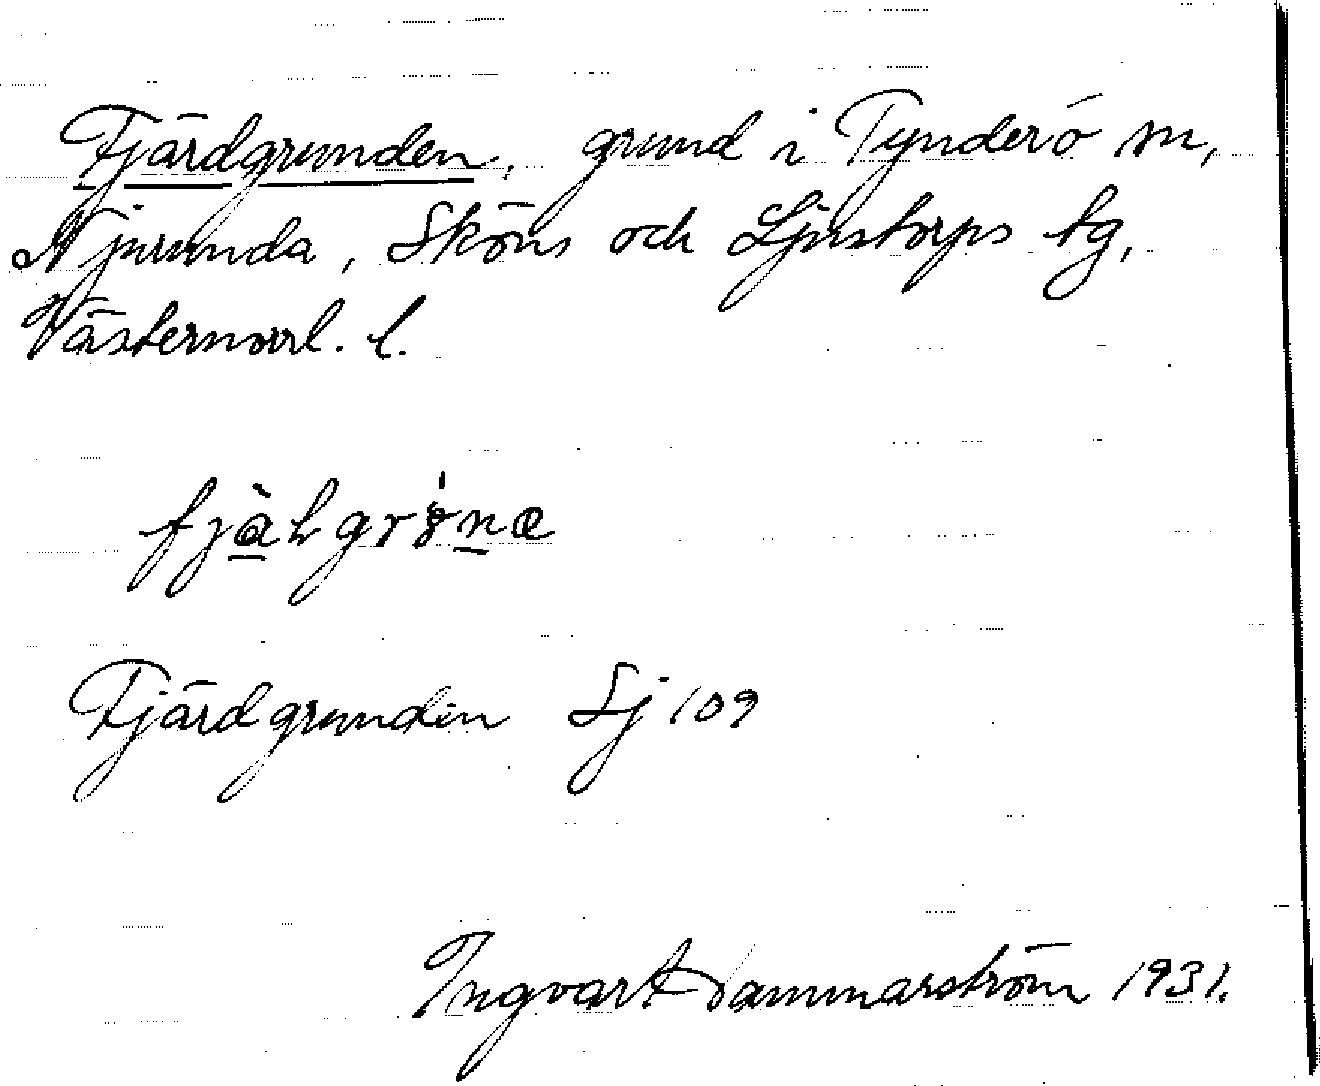 Fjärdgrunden, grund i Tynderö sn,
Njurunda, Sköns och Ljustorps tg,
Västernorrl. l.
Fjärdgrunden Sj 109
Ingvart Hammarström 1931.